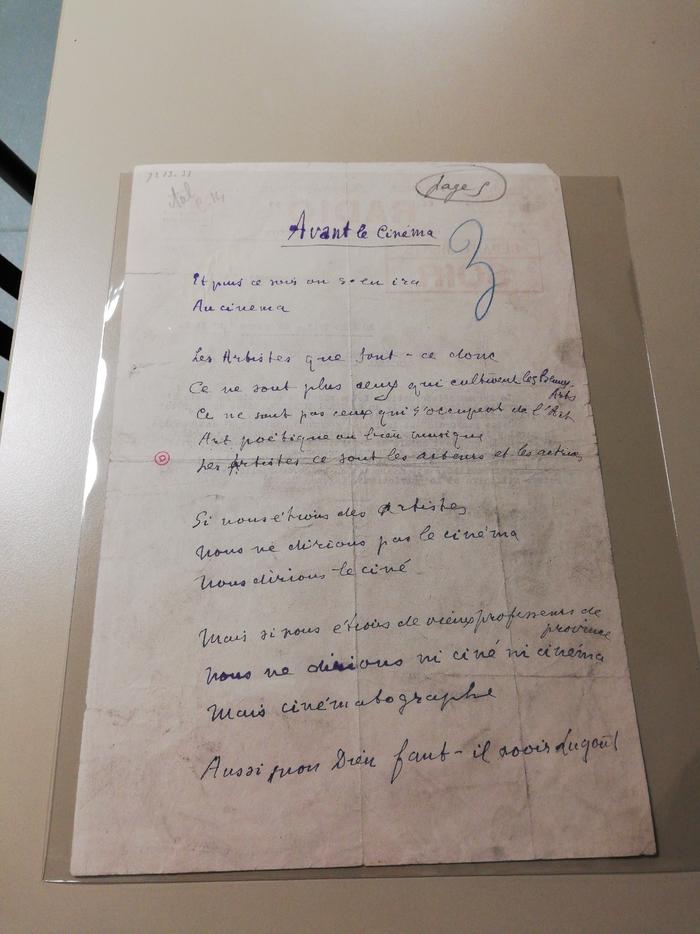 page 5
Avant le Cinéma
3
Et puis ce soir on s'en ira
Au cinema
Les Artistes que sont-ce donc
Ce ne sont plus ceux qui cultivent les Beaux-
Arts
Ce ne sont pas ceux qui s'occupent de l'Art
Art poétique ou bien musique
D
Les Artistes ce sont les acteurs et les actrices
Si nous étions des Artistes
Nous ne dirions pas le cinéma
Nous dirions le ciné
Mais si nous étions de vieux professeurs de
province
Nous ne dirions ni ciné ni cinéma
Mais cinématographe
Aussi mon Dieu faut-il avoir du goût